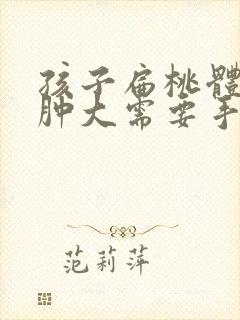 孩子扁桃體
肿大需要手
范莉萍